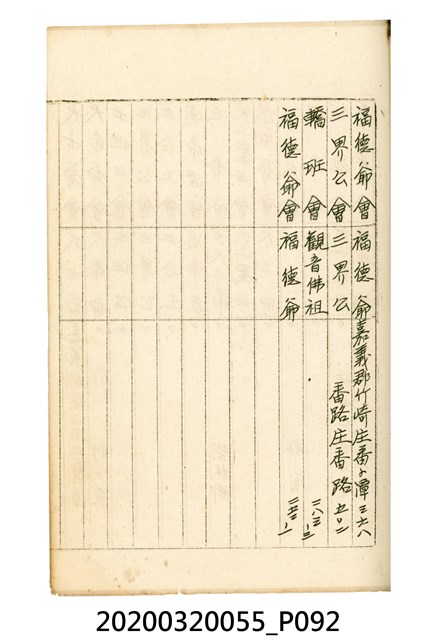 福德爺會 福德爺 嘉義郡竹崎庄番子潭三六八
三界公會 三界公 番路庄番路五〇二
轎班會 觀音佛祖 二八三ノ三
福德爺會 福德爺
20200320055_P092